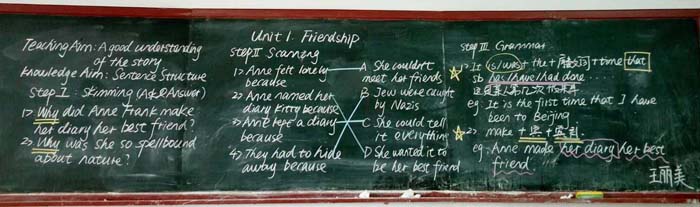 Teaching Aim: A good understanding
of the story
Knowledge Aim: Sentence Structure
Step I: Skimming
1) Why did Anne Frank make
her diary her best friend?
2) Why was she so spellbound
about nature?
Unit 1 Friendship
Step II Scanning
1) Anne felt lonely
because
2) Anne named her
diary Kitty because
3) Anne kept a diary
because
4) They had to hide
away because
A She couldn't
meet her friends
B Jews were caught
by Nazis
C She could tell
it everything
D She wanted it to
be her best friend
Step III Grammar
1) It is/was the + 序数词 + time that
sb has/have/had done ...
eg: It is the first time that I have
been to Beijing
2) make + 宾 + 宾补
eg: Anne made her diary her best
friend.
王丽美